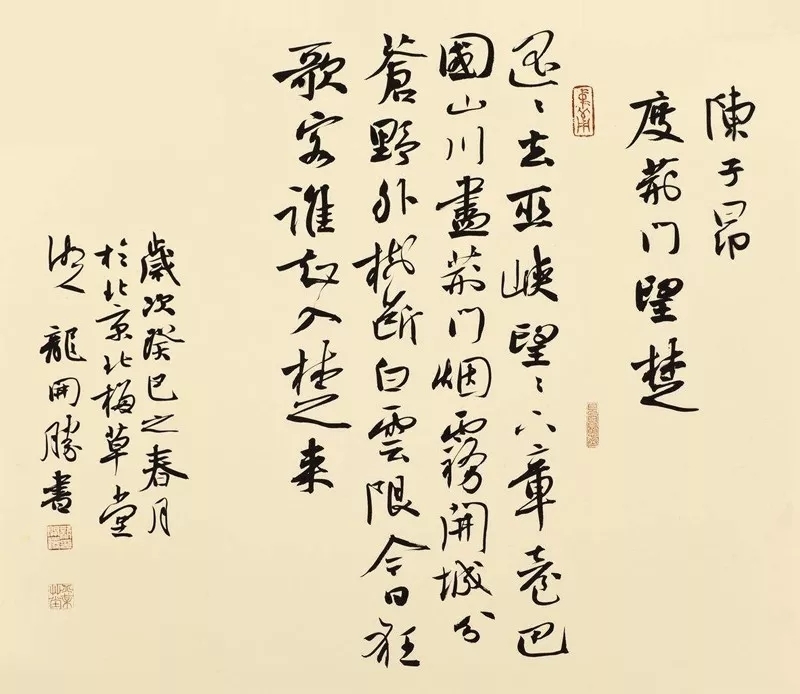 陳子昂
度荊门望楚
遥〻去巫峽望〻下章臺巴
國山川盡荊门烟霧開城分
蒼野外樹断白雲限今日狂
歌客誰知入楚来
歲次癸巳之春月
於北京北梅草堂
龍開勝書